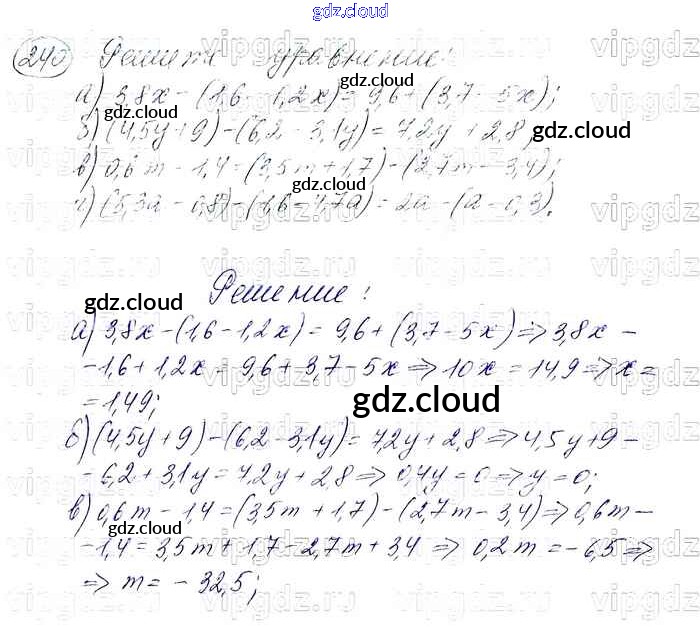 gdz.cloud
240 Решите уравнение:
а) 3,8x - (1,6 - 1,2x) = 9,6 + (3,7 - 5x);
б) (4,5y + 9) - (6,2 - 3,1y) = 7,2y + 2,8;
в) 0,6m - 1,4 = (3,5m + 1,7) - (2,7m - 3,4);
г) (5,3a - 0,8) - (1,6 - 4,7a) = 2a - (a - 0,3).
Решение:
а) 3,8x - (1,6 - 1,2x) = 9,6 + (3,7 - 5x) => 3,8x -
- 1,6 + 1,2x = 9,6 + 3,7 - 5x => 10x = 14,9 => x =
= 1,49;
б) (4,5y + 9) - (6,2 - 3,1y) = 7,2y + 2,8 => 4,5y + 9 -
- 6,2 + 3,1y = 7,2y + 2,8 => 0,4y = 0 => y = 0;
в) 0,6m - 1,4 = (3,5m + 1,7) - (2,7m - 3,4) => 0,6m -
- 1,4 = 3,5m + 1,7 - 2,7m + 3,4 => 0,2m = -6,5 =>
=> m = -32,5;